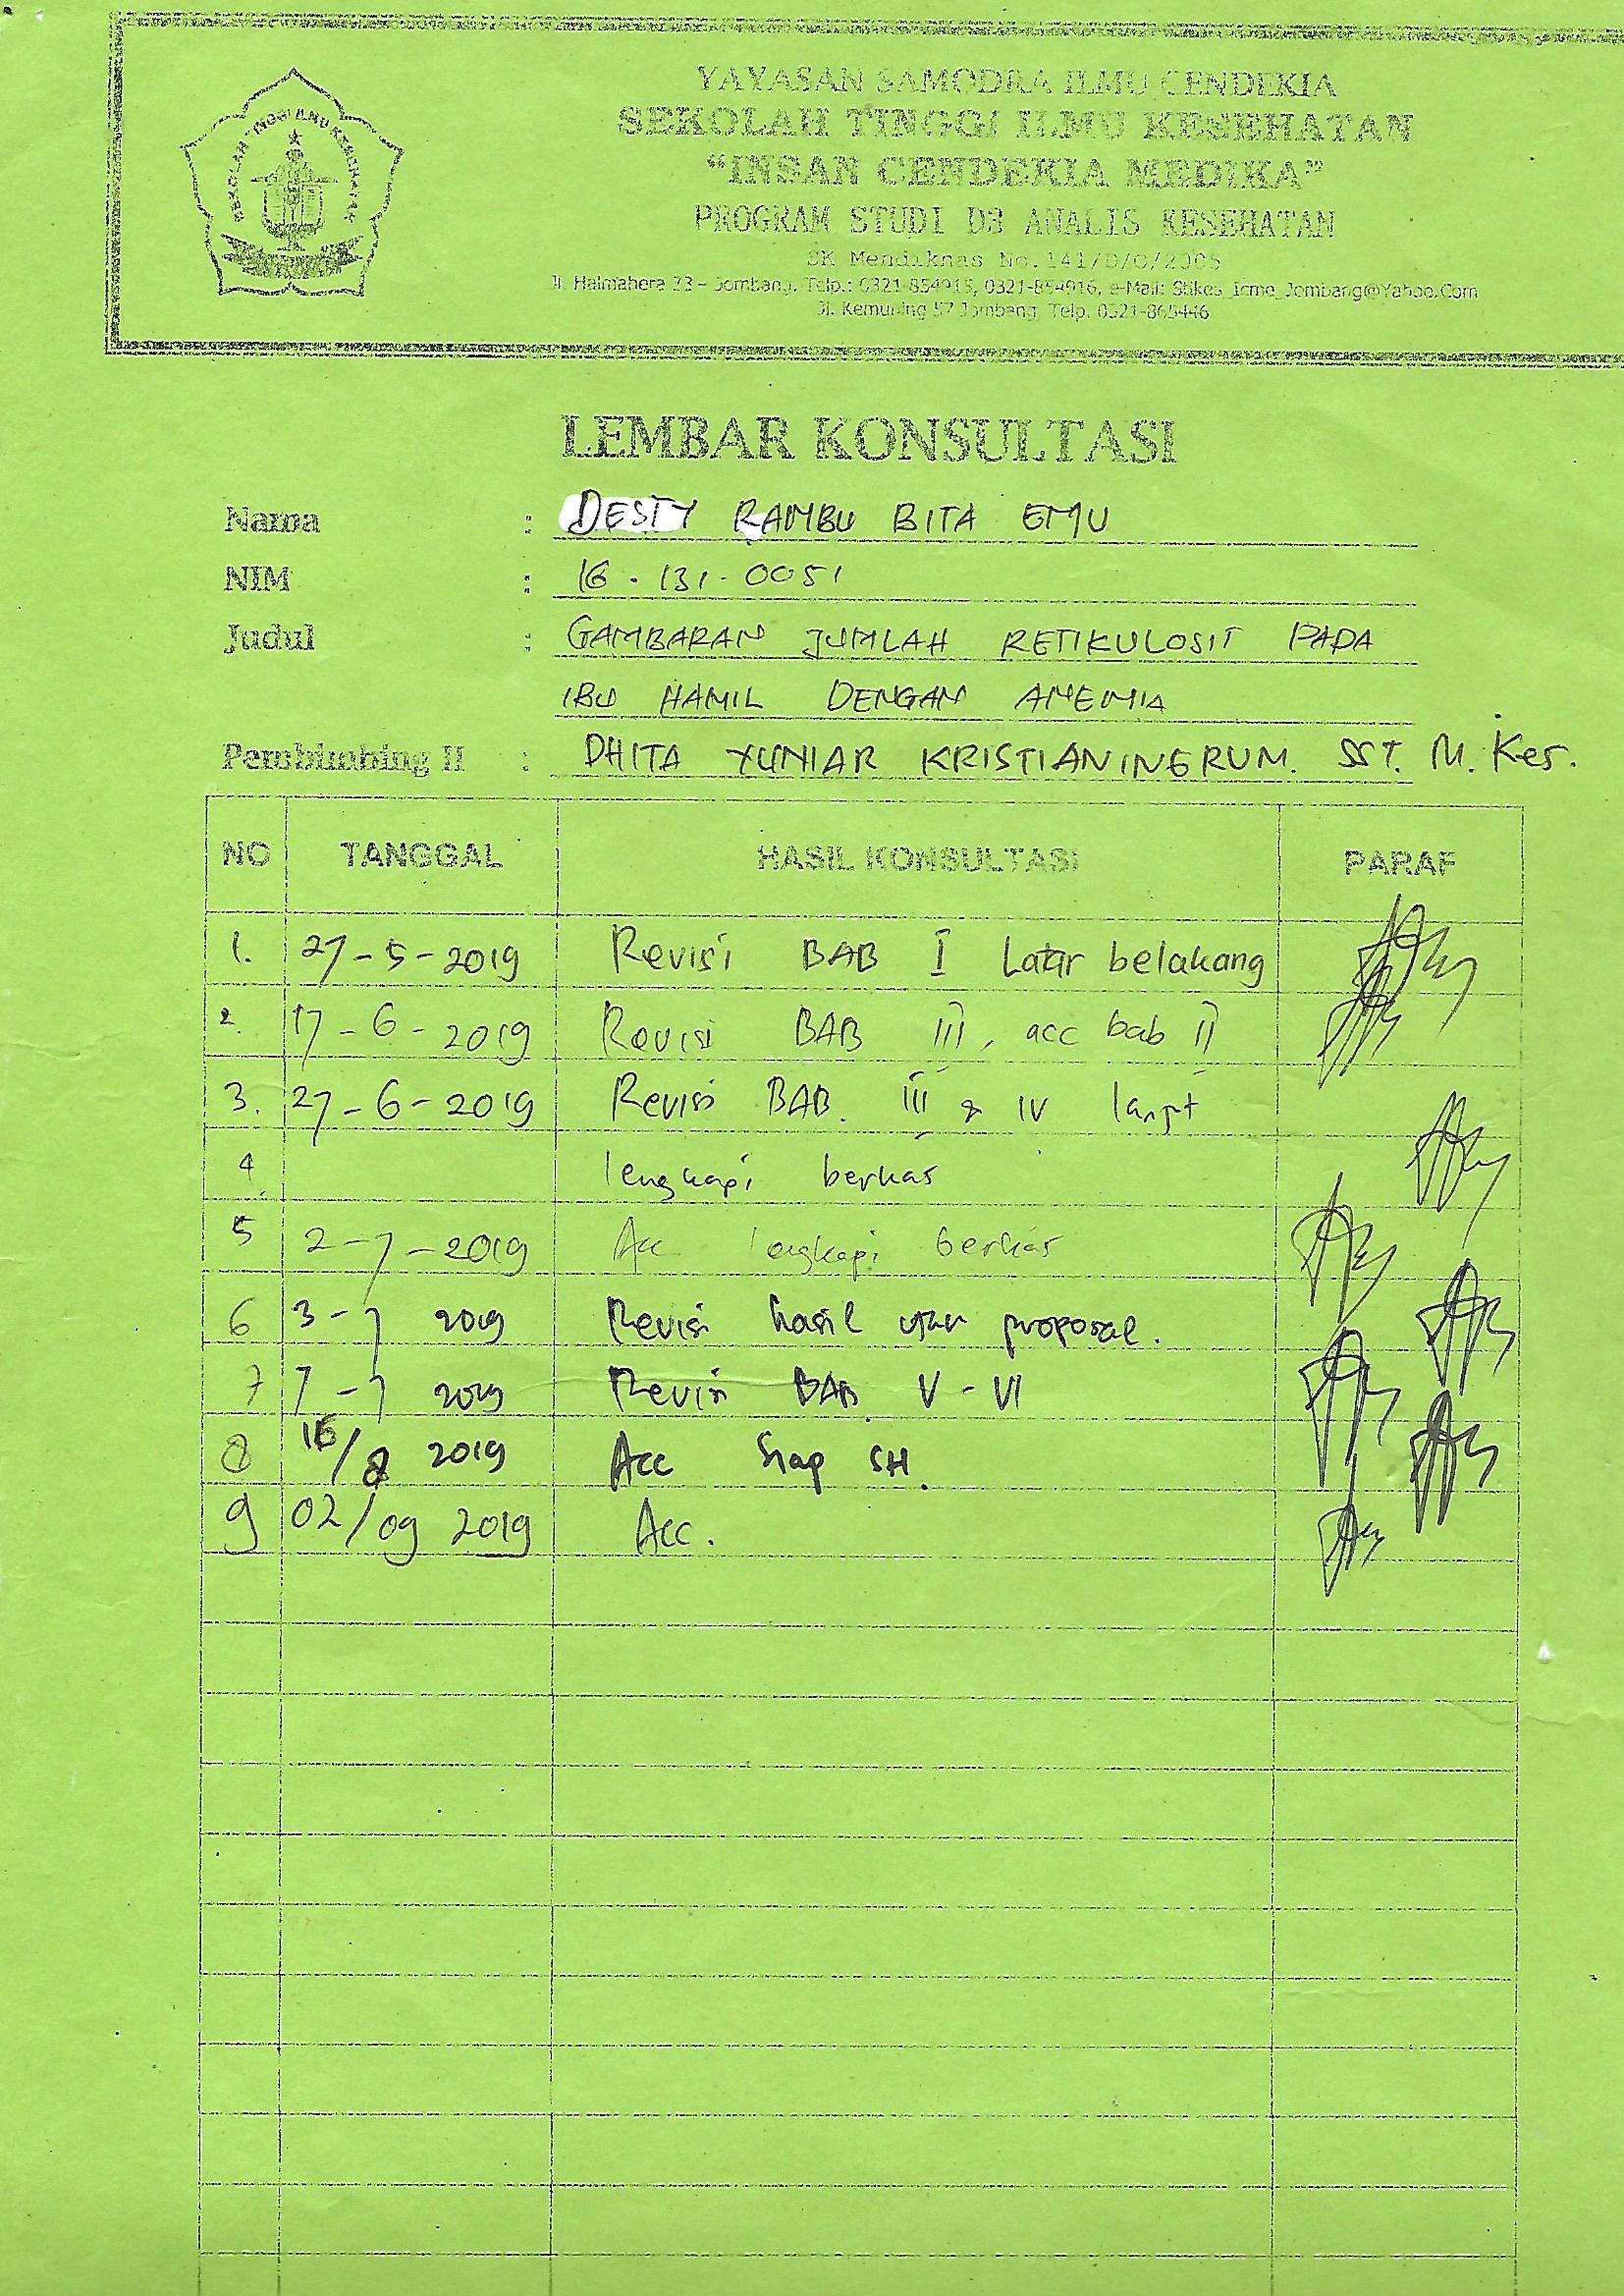 YAYASAN SAMODRA ILMU CENDEKIA
SEKOLAH TINGGI ILMU KESEHATAN
"INSAN CENDEKIA MEDIKA"
PROGRAM STUDI D3 ANALIS KESEHATAN
SK Mendiknas No.141/D/O/2005
Jl. Halmahera 33 – Jombang, Telp.: 0321-854915, 0321-854916, e-Mail: Stikes_Icme_Jombang@Yahoo.Com
Jl. Kemuning 57 Jombang Telp. 0321-865446
SEKOLAH TINGGI ILMU KESEHATAN
LEMBAR KONSULTASI
Nama : DESTY RAMBU BITA EMU
NIM : 16.131.0051
Judul : GAMBARAN JUMLAH RETIKULOSIT PADA
IBU HAMIL DENGAN ANEMIA
Pembimbing II : DHITA YUNIAR KRISTIANINGRUM. SST. M. Kes.
NO TANGGAL HASIL KONSULTASI PARAF
1. 27-5-2019 Revisi BAB I Latar belakang
2. 17-6-2019 Revisi BAB III, acc bab II
3. 27-6-2019 Revisi BAB. III & IV lanjt
4 lengkapi berkas
5 2-7-2019 Acc lengkapi berkas
6 3-7 2019 Revisi hasil ujian proposal.
7 7-7 2019 Revisi BAB V - VI
8 16/8 2019 Acc siap SH.
9 02/09 2019 Acc.